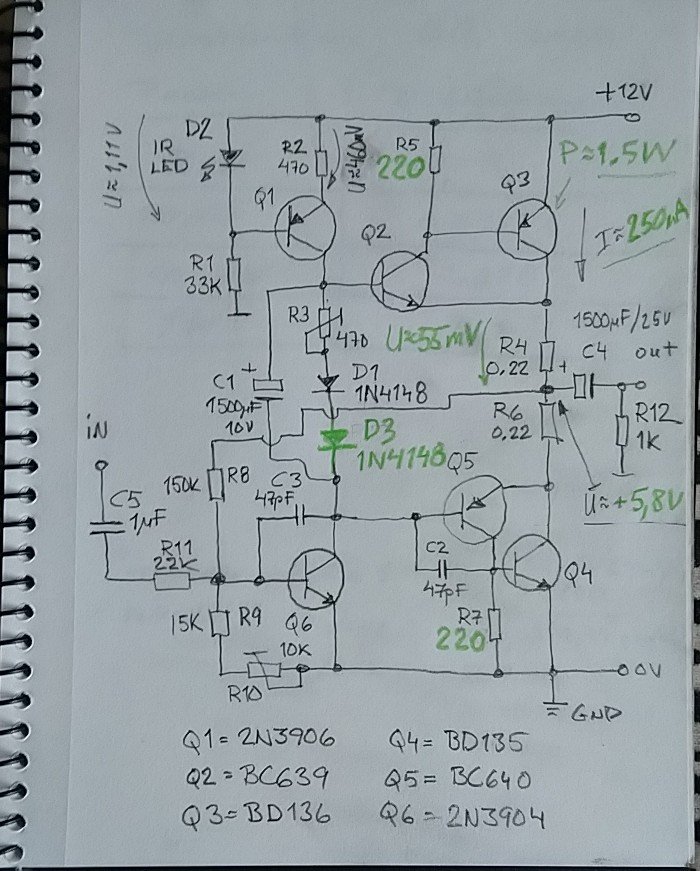 +12V
D2
IR
LED
U≈1,11V
R2
470
U≈460mV
R5
220
Q3
P≈1.5W
I≈250mA
Q1
Q2
R1
33K
R3
470
U≈55mV
R4
0,22
1500µF/25V
+
C4
out
C1
+
1500µF
10V
D1
1N4148
R6
0,22
R12
1K
iN
D3
1N4148
Q5
U≈+5,8V
150K
R8
C3
47pF
C5
1µF
R11
22K
C2
47pF
Q4
15K
R9
Q6
10K
R7
220
R10
0V
GND
Q1=2N3906
Q4=BD135
Q2=BC639
Q5=BC640
Q3=BD136
Q6=2N3904